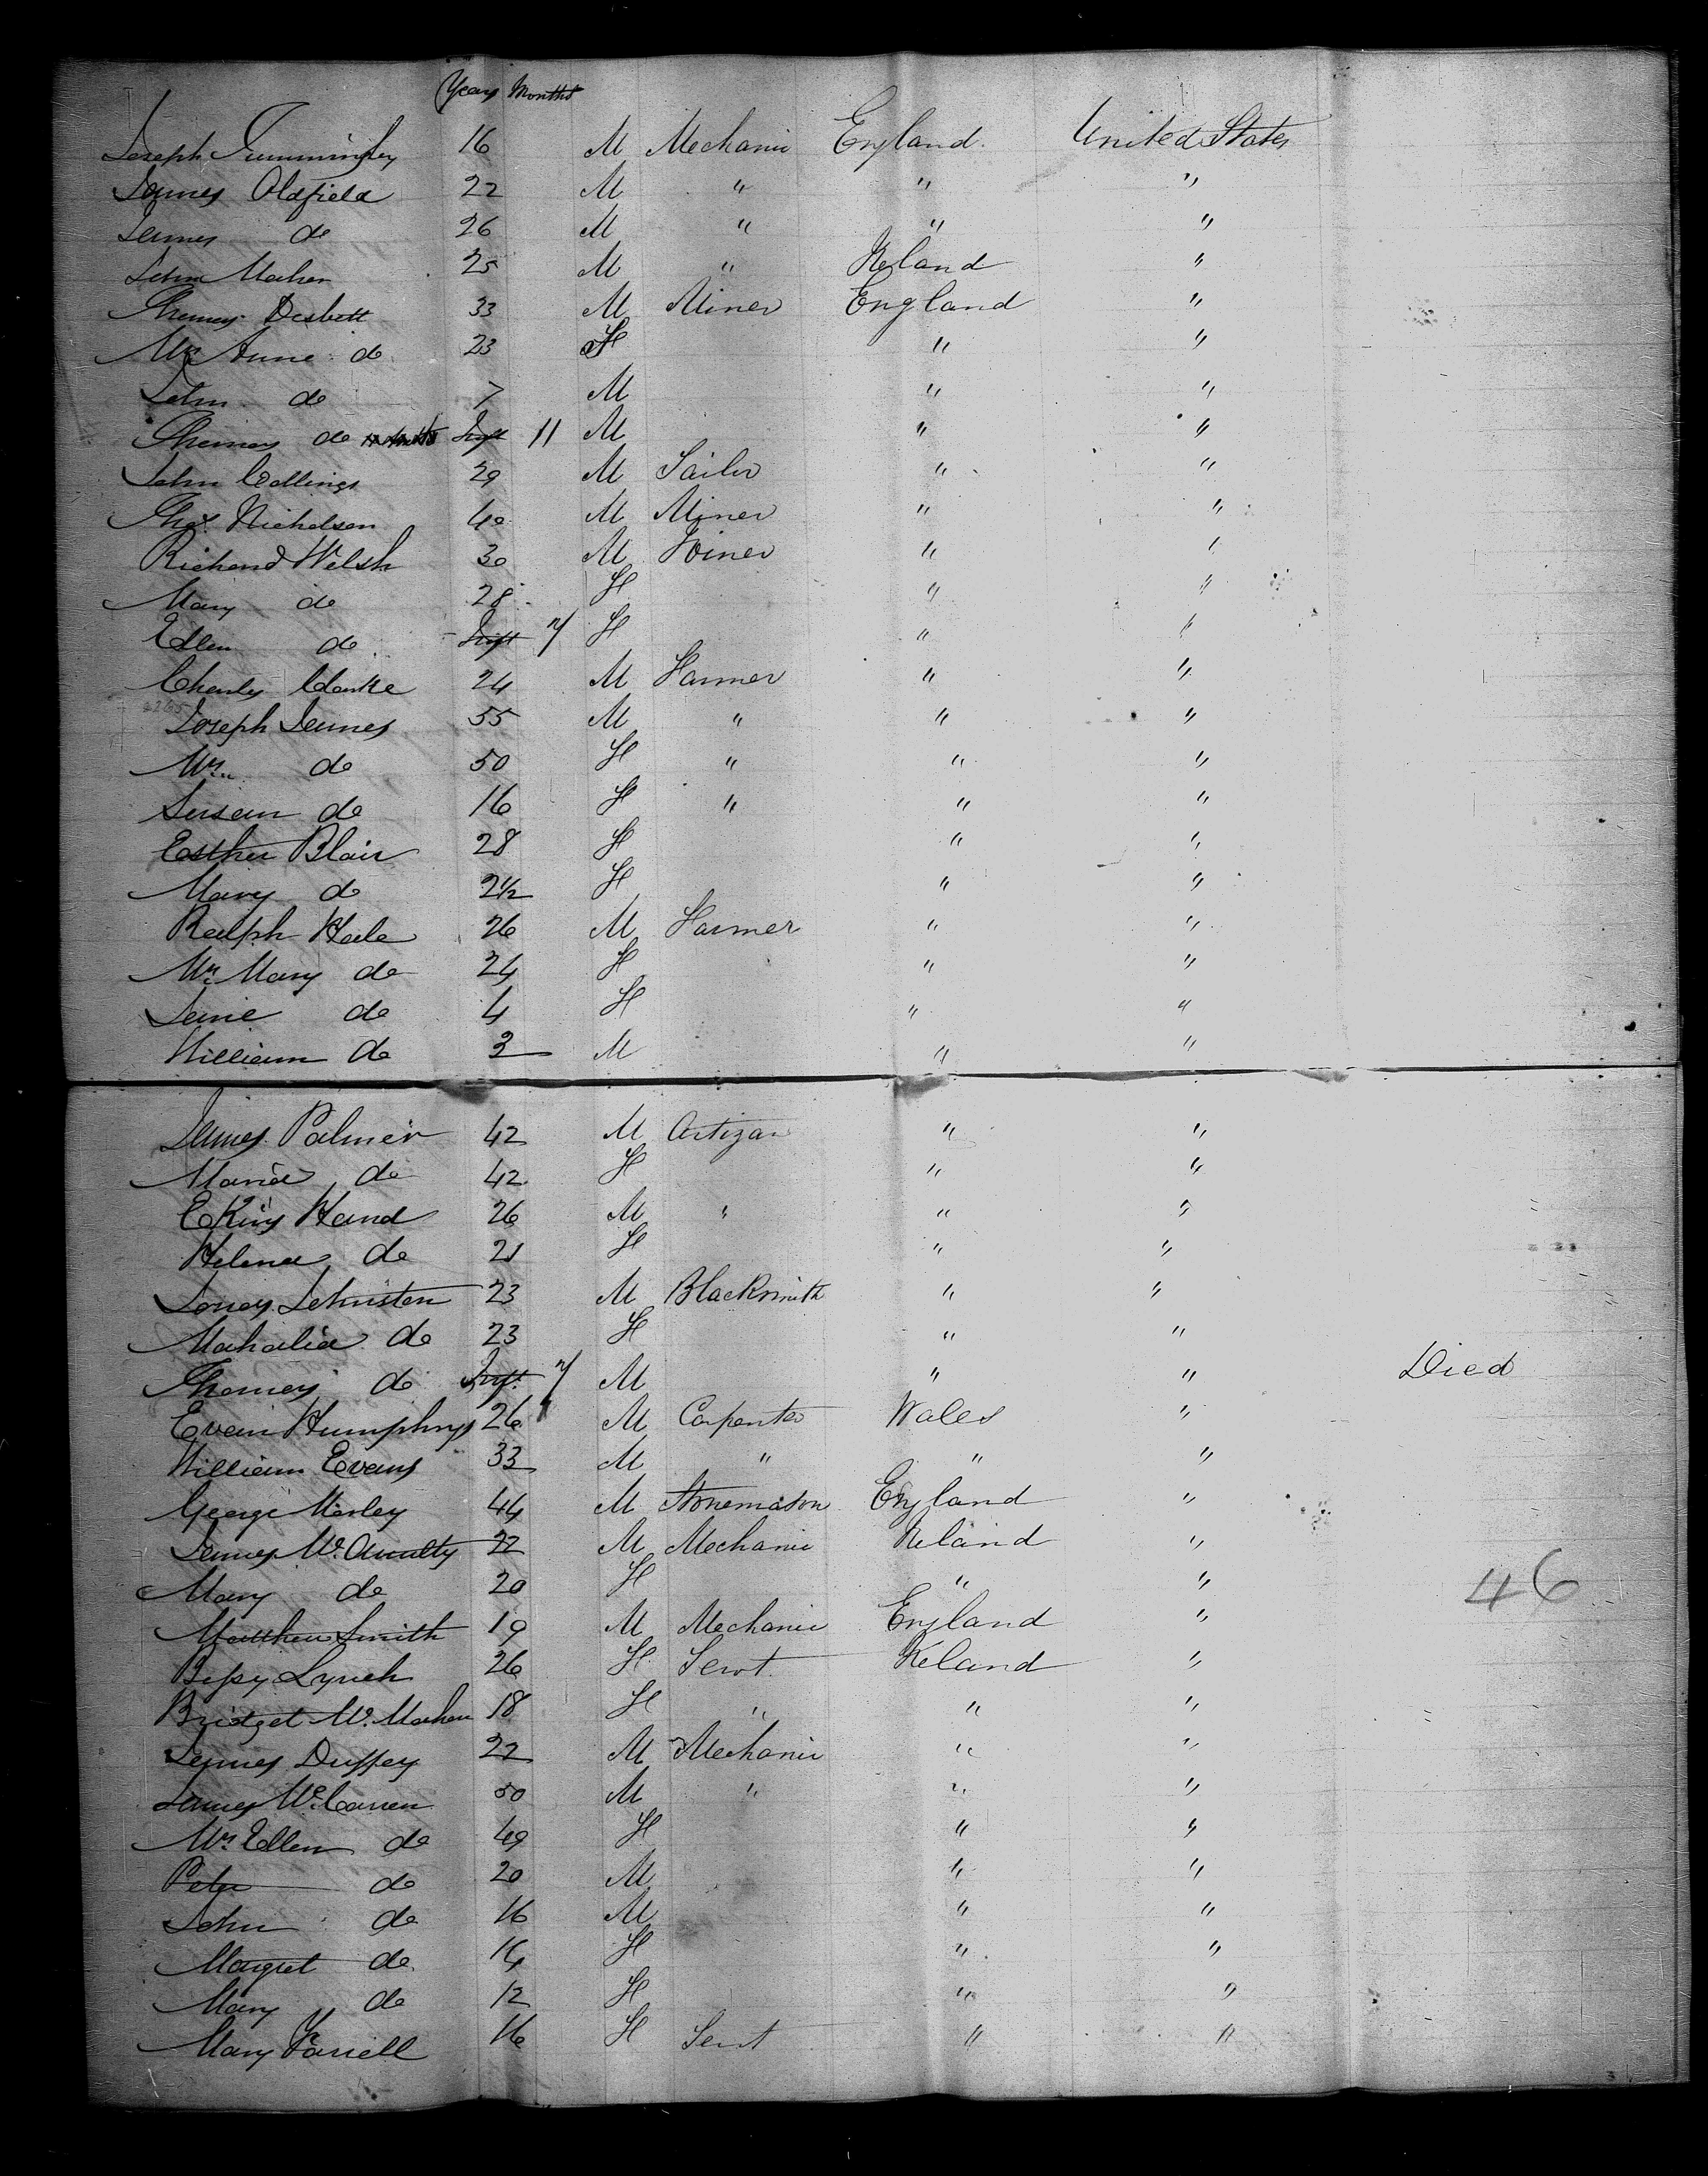 Years Months
Joseph Tummingley 16 M Mechanic England United States
James Oldfield 22 M " " "
James do 26 M " " "
John Maher 25 M " Ireland "
Thomas Desbett 33 M Miner England "
Mrs Anne do 23 F " "
John do 7 M " "
Thomas do 11 Months Inft 11 M " "
John Collings 29 M Sailor " "
Thos. Nicholson 40 M Miner " "
Richard Welsh 30 M Joiner " "
Mary do 28 F " "
Ellen do Inft 7 F " "
Charles Clarke 24 M Farmer " "
Joseph James 55 M " " "
Mrs. do 50 F " " "
Susan do 16 F " " "
Esther Blair 28 F " "
Mary do 2½ F " "
Ralph Hale 26 M Farmer " "
Mrs Mary do 24 F " "
Jane do 4 F " "
William do 3 M " "
James Palmer 42 M Artizan " "
Maria do 42 F " "
E King Hand 26 M " " "
Helena do 21 F " "
Jones Johnston 23 M Blacksmith " "
Mahalia do 23 F " "
Thomas do Inft. 7 M " " Died
Evan Humphrys 26 M Carpenter Wales "
William Evans 33 M " " "
George Morley 44 M Stonemason England "
James McAnulty 22 M Mechanic Ireland "
Mary do 20 F " " 46
Matthew Smith 19 M Mechanic England "
Bessy Lynch 26 F Servt. Ireland "
Bridget McMahon 18 F " " "
James Duffey 22 M Mechanic " "
James McCarren 50 M " " "
Mrs Ellen do 49 F " "
Peter do 20 M " "
John do 16 M " "
Margret do 14 F " "
Mary do 12 F " "
Mary Farrell 16 F Servt " "